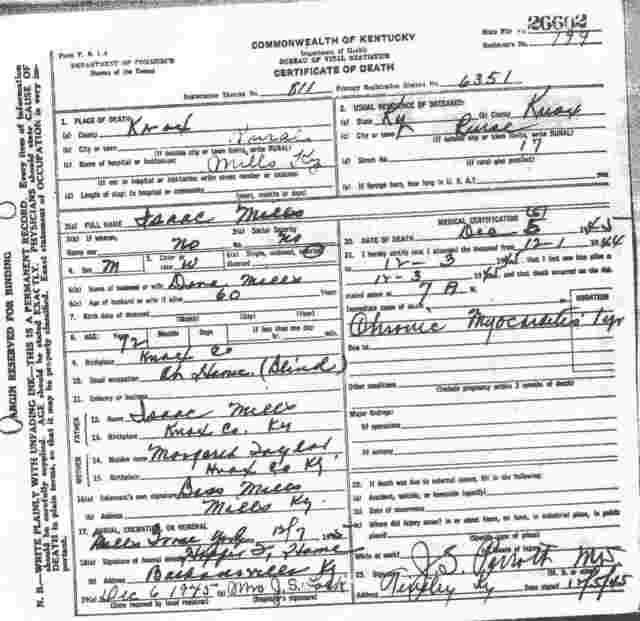 26602
Form V. S. 1-A
DEPARTMENT OF COMMERCE
Bureau of the Census
COMMONWEALTH OF KENTUCKY
Department of Health
BUREAU OF VITAL STATISTICS
CERTIFICATE OF DEATH
State File No.
Registrar's No. 199
Registration District No. 811
Primary Registration District No. 6351
MARGIN RESERVED FOR BINDING
N. B.—WRITE PLAINLY WITH UNFADING INK—THIS IS A PERMANENT RECORD. Every item of information
should be carefully supplied. AGE should be stated EXACTLY. PHYSICIANS should state CAUSE OF
DEATH in plain terms, so that it may be properly classified. Exact statement of OCCUPATION is very im-
portant.
1. PLACE OF DEATH:
(a) County Knox
(b) City or town Rural
(If outside city or town limits, write RURAL)
(c) Name of hospital or institution: Mills Ky
(If not in hospital or institution write street number or location)
(d) Length of stay: In hospital or community
(years, months or days)
2. USUAL RESIDENCE OF DECEASED:
(a) State Ky (b) County Knox
(c) City or town Rural
(If outside city or town limits, write RURAL)
(d) Street No. 17
(If rural give precinct)
(e) If foreign born, how long in U. S. A.? years
3(a) FULL NAME Isaac Mills
3(b) If veteran, name war No
3(c) Social Security No. No
4. Sex M
5. Color or race W
6(a) Single, widowed, married, divorced
6(b) Name of husband or wife Dora Mills
6(c) Age of husband or wife if alive 60 Years
7. Birth date of deceased
(Month) (Day) (Year)
8. AGE: Years 72 Months Days If less than one day
hr. min.
9. Birthplace Knox Co
10. Usual occupation At Home (Blind)
11. Industry or business
FATHER
12. Name Isaac Mills
13. Birthplace Knox Co. Ky
MOTHER
14. Maiden name Margaret Taylor
15. Birthplace Knox Co Ky
16(a) Informant's own signature Bess Mills
(b) Address Mills Ky.
17. BURIAL, CREMATION OR REMOVAL
12/7 1945
18(a) Signature of funeral director
(b) Address Barbourville Ky
19(a) Dec 6 1945 (b) Mrs J. S.
(Date received by local registrar) (Registrar's signature)
MEDICAL CERTIFICATION
20. DATE OF DEATH Dec 5 1945
21. I hereby certify that I attended the deceased from 12-1 1944
12-3 1945, that I last saw him alive
12-3 1945 and that death occurred on the date
stated above at 7 A. M.
DURATION
Immediate cause of death
Chronic Myocarditis 1 yr
Due to
Other conditions
(Include pregnancy within 3 months of death)
Major findings:
Of operations
Of autopsy
22. If death was due to external causes, fill in the following:
(a) Accident, suicide, or homicide (specify)
(b) Date of occurrence
(c) Where did injury occur? in or about home, on farm, in industrial place, in public
place?
(Specify type of place)
While at work?
23. J. S. Parrott MD
Address Tinsley Ky Date signed 12/5/45